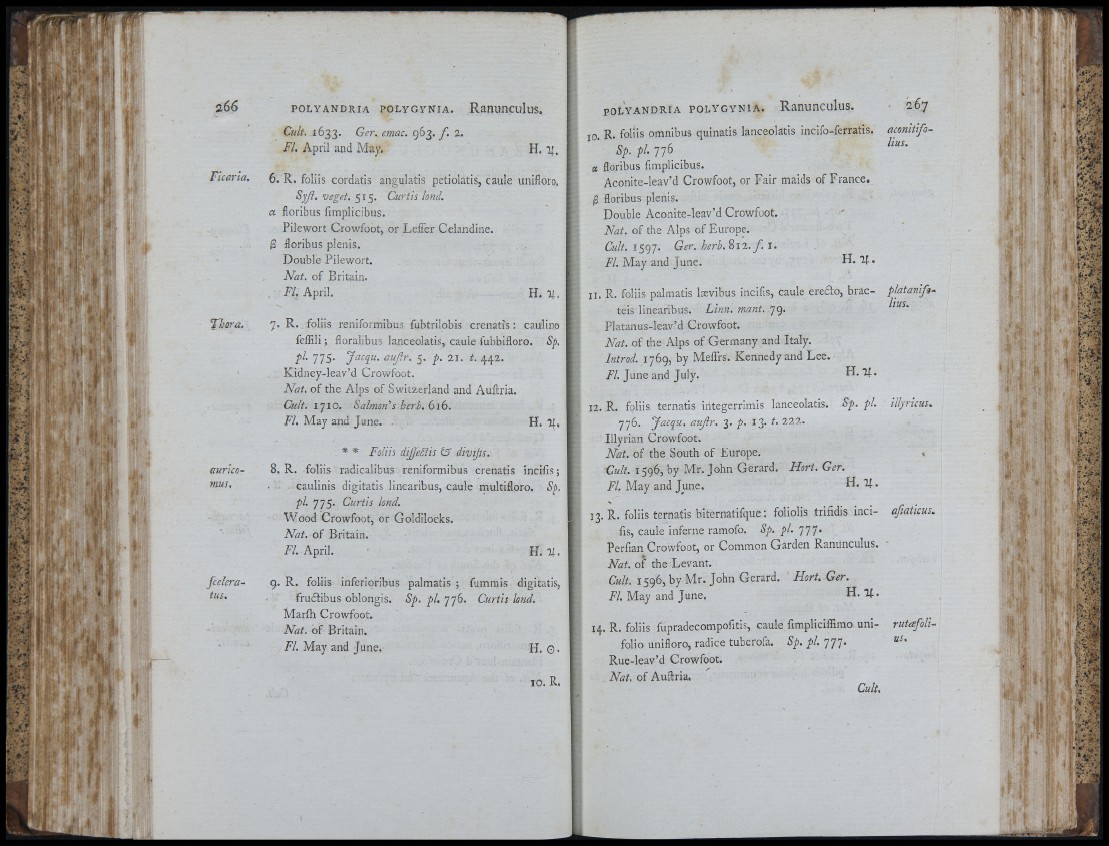 266 POLYANDRIA POLYGYNIA. Ranunculus.
Cult. 1633. Ger. emac. 963. f. 2.
Fl. April and May. H. ♃.
Ficaria. 6. R. foliis cordatis angulatis petiolatis, caule unifloro.
Syſt. veget. 515. Curtis lond.
α floribus ſimplicibus.
Pilewort Crowfoot, or Leſſer Celandine.
β floribus plenis.
Double Pilewort.
Nat. of Britain.
Fl. April. H. ♃.
Thora. 7. R. foliis reniformibus ſubtrilobis crenatis: caulino
ſeſſili; floralibus lanceolatis, caule ſubbifloro. Sp.
pl. 775. Jacqu. auſtr. 5. p. 21. t. 442.
Kidney-leav'd Crowfoot.
Nat. of the Alps of Switzerland and Auſtria.
Cult. 1710. Salmon's herb. 616.
Fl. May and June. H. ♃.
* * Foliis diſſectis & diviſis.
aurico- 8. R. foliis radicalibus reniformibus crenatis inciſis;
mus. caulinis digitatis linearibus, caule multifloro. Sp.
pl. 775. Curtis lond.
Wood Crowfoot, or Goldilocks.
Nat. of Britain.
Fl. April. H. ♃.
ſcelera- 9. R. foliis inferioribus palmatis; ſummis digitatis,
tus. fructibus oblongis. Sp. pl. 776. Curtis lond.
Marſh Crowfoot.
Nat. of Britain.
Fl. May and June. H. ☉.
10. R.
POLYANDRIA POLYGYNIA. Ranunculus. 267
10. R. foliis omnibus quinatis lanceolatis inciſo-ſerratis. aconitifo-
Sp. pl. 776 lius.
α floribus ſimplicibus.
Aconite-leav'd Crowfoot, or Fair maids of France.
β floribus plenis.
Double Aconite-leav'd Crowfoot.
Nat. of the Alps of Europe.
Cult. 1597. Ger. herb. 812. f. 1.
Fl. May and June. H. ♃.
11. R. foliis palmatis lævibus inciſis, caule erecto, brac- platanifo-
teis linearibus. Linn. mant. 79. lius.
Platanus-leav'd Crowfoot.
Nat. of the Alps of Germany and Italy.
Introd. 1769, by Meſſrs. Kennedy and Lee.
Fl. June and July. H. ♃.
12. R. foliis ternatis integerrimis lanceolatis. Sp. pl. illyricus.
776. Jacqu. auſtr. 3. p. 13. t. 222.
Illyrian Crowfoot.
Nat. of the South of Europe.
Cult. 1596, by Mr. John Gerard. Hort. Ger.
Fl. May and June. H. ♃.
13. R. foliis ternatis biternatiſque: foliolis trifidis inci- aſiaticus.
ſis, caule inferne ramoſo. Sp. pl. 777.
Perſian Crowfoot, or Common Garden Ranunculus.
Nat. of the Levant.
Cult. 1596, by Mr. John Gerard. Hort. Ger.
Fl. May and June. H. ♃.
14. R. foliis ſupradecompoſitis, caule ſimpliciſſimo uni- rutæfoli-
folio unifloro, radice tuberoſa. Sp. pl. 777. us.
Rue-leav'd Crowfoot.
Nat. of Auſtria.
Cult.